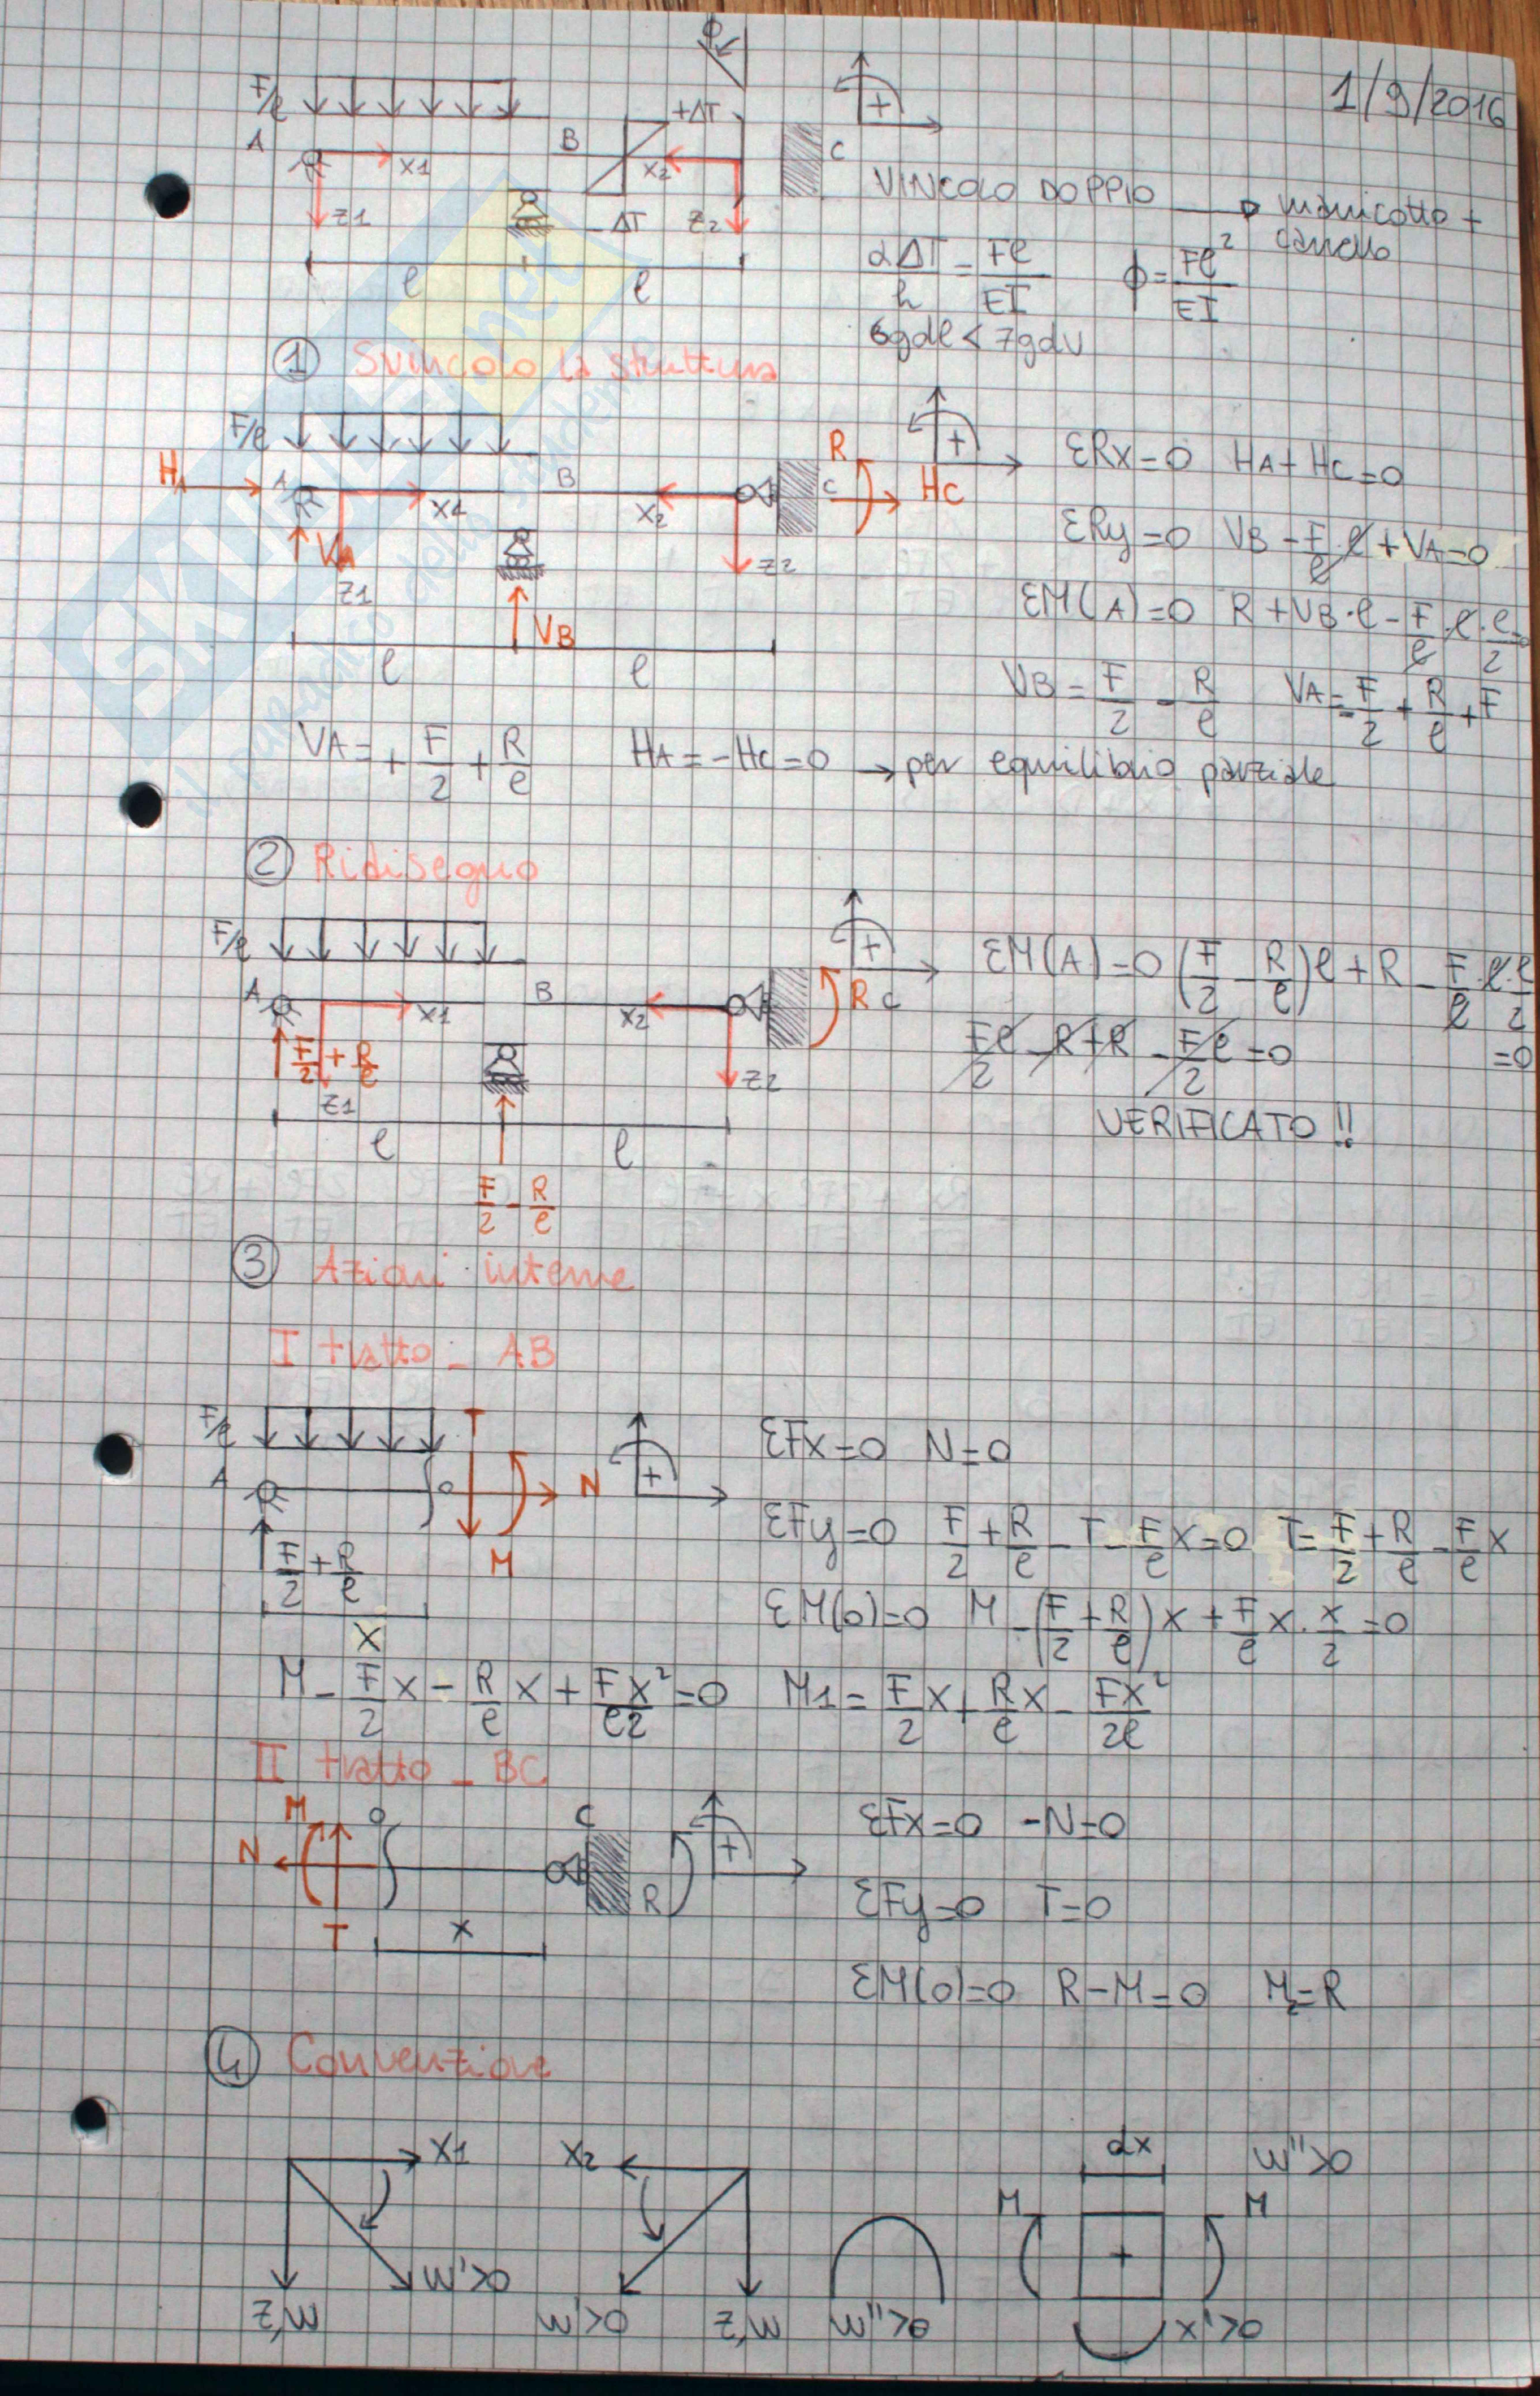 1/9/2016
φ
F/ℓ
+ΔT
A x1 B x2 C
z1 -ΔT z2
ℓ ℓ
VINCOLO DOPPIO → manicotto + carrello
αΔT/h = Fℓ/EI φ = Fℓ²/EI
6gdl < 7gdv
① Svincolo la struttura
F/ℓ
R
HA A x1 B x2 C HC
VA z1 z2
VB
ℓ ℓ
ΣRx=0 HA+HC=0
ΣRy=0 VB - F/ℓ·ℓ + VA=0
ΣM(A)=0 R+VB·ℓ - F/ℓ·ℓ·ℓ/2=0
VB = F/2 - R/ℓ VA = -F/2 + R/ℓ + F
VA = + F/2 + R/ℓ HA = -HC = 0 → per equilibrio parziale
② Ridisegno
F/ℓ
A x1 B x2 R C
F/2 + R/ℓ z1 z2
ℓ ℓ
F/2 - R/ℓ
ΣM(A)=0 (F/2 - R/ℓ)ℓ + R - F/ℓ·ℓ·ℓ/2 =0
Fℓ/2 - R + R - Fℓ/2 = 0
VERIFICATO!!
③ Azioni interne
I tratto - AB
F/ℓ T
A o N
F/2 + R/ℓ M
x
ΣFx=0 N=0
ΣFy=0 F/2 + R/ℓ - T - F/ℓ x=0 T= F/2 + R/ℓ - F/ℓ x
ΣM(o)=0 M - (F/2 + R/ℓ)x + F/ℓ x · x/2 = 0
M - F/2 x - R/ℓ x + Fx²/ℓ2 = 0 M1 = F/2 x + R/ℓ x - Fx²/2ℓ
II tratto - BC
M o C
N R
T x
ΣFx=0 -N=0
ΣFy=0 T=0
ΣM(o)=0 R-M=0 M2=R
④ Convenzione
x1 x2 dx w''>0
M M
+
w'>0
z,w w'>0 z,w w''>0 x'>0